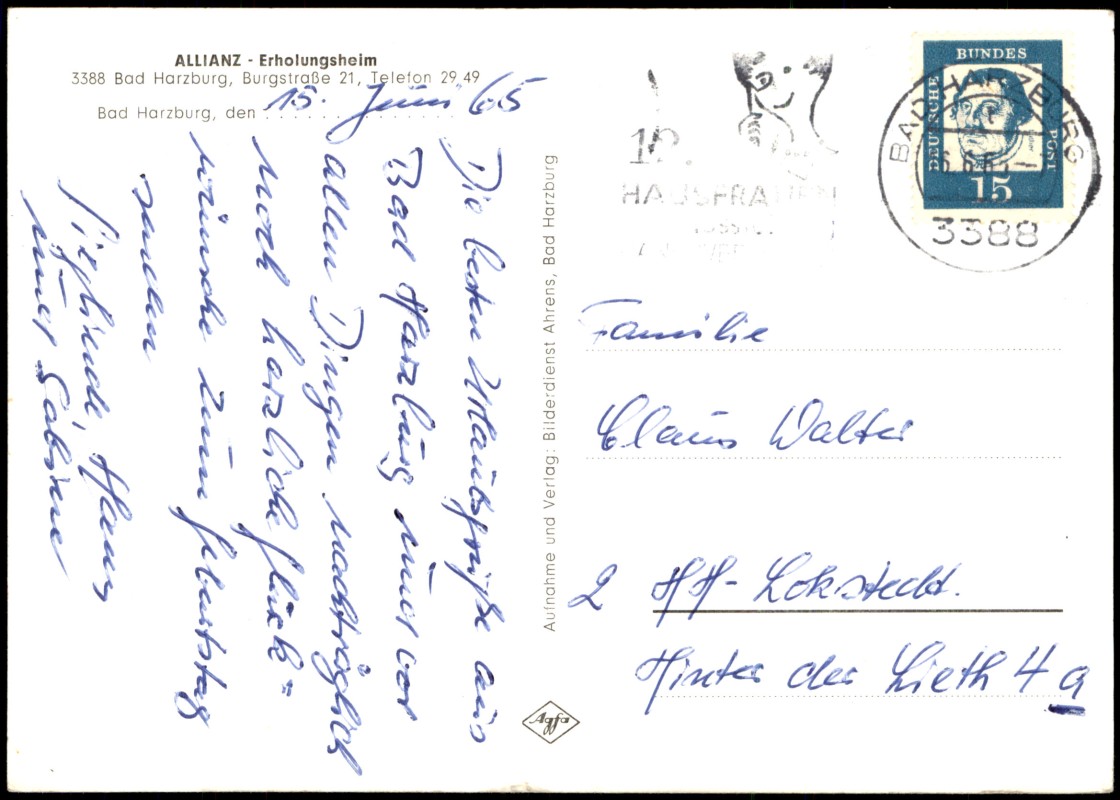 ALLIANZ - Erholungsheim
3388 Bad Harzburg, Burgstraße 21, Telefon 29 49
Bad Harzburg, den 15. Juni 65
Die besten Urlaubsgrüße aus
Bad Harzburg und vor
allen Dingen nachträglich
noch herzliche Glück=
wünsche zum Geburtstag
senden
Sieglinde, Hans
und Sabine
Aufnahme und Verlag: Bilderdienst Ahrens, Bad Harzburg
Agfa
HAUSFRAUEN
DEUTSCHE
BUNDES
POST
15
BAD HARZBURG
3388
Familie
Claus Walter
2 HH-Lokstedt.
Hinter der Lieth 4 a